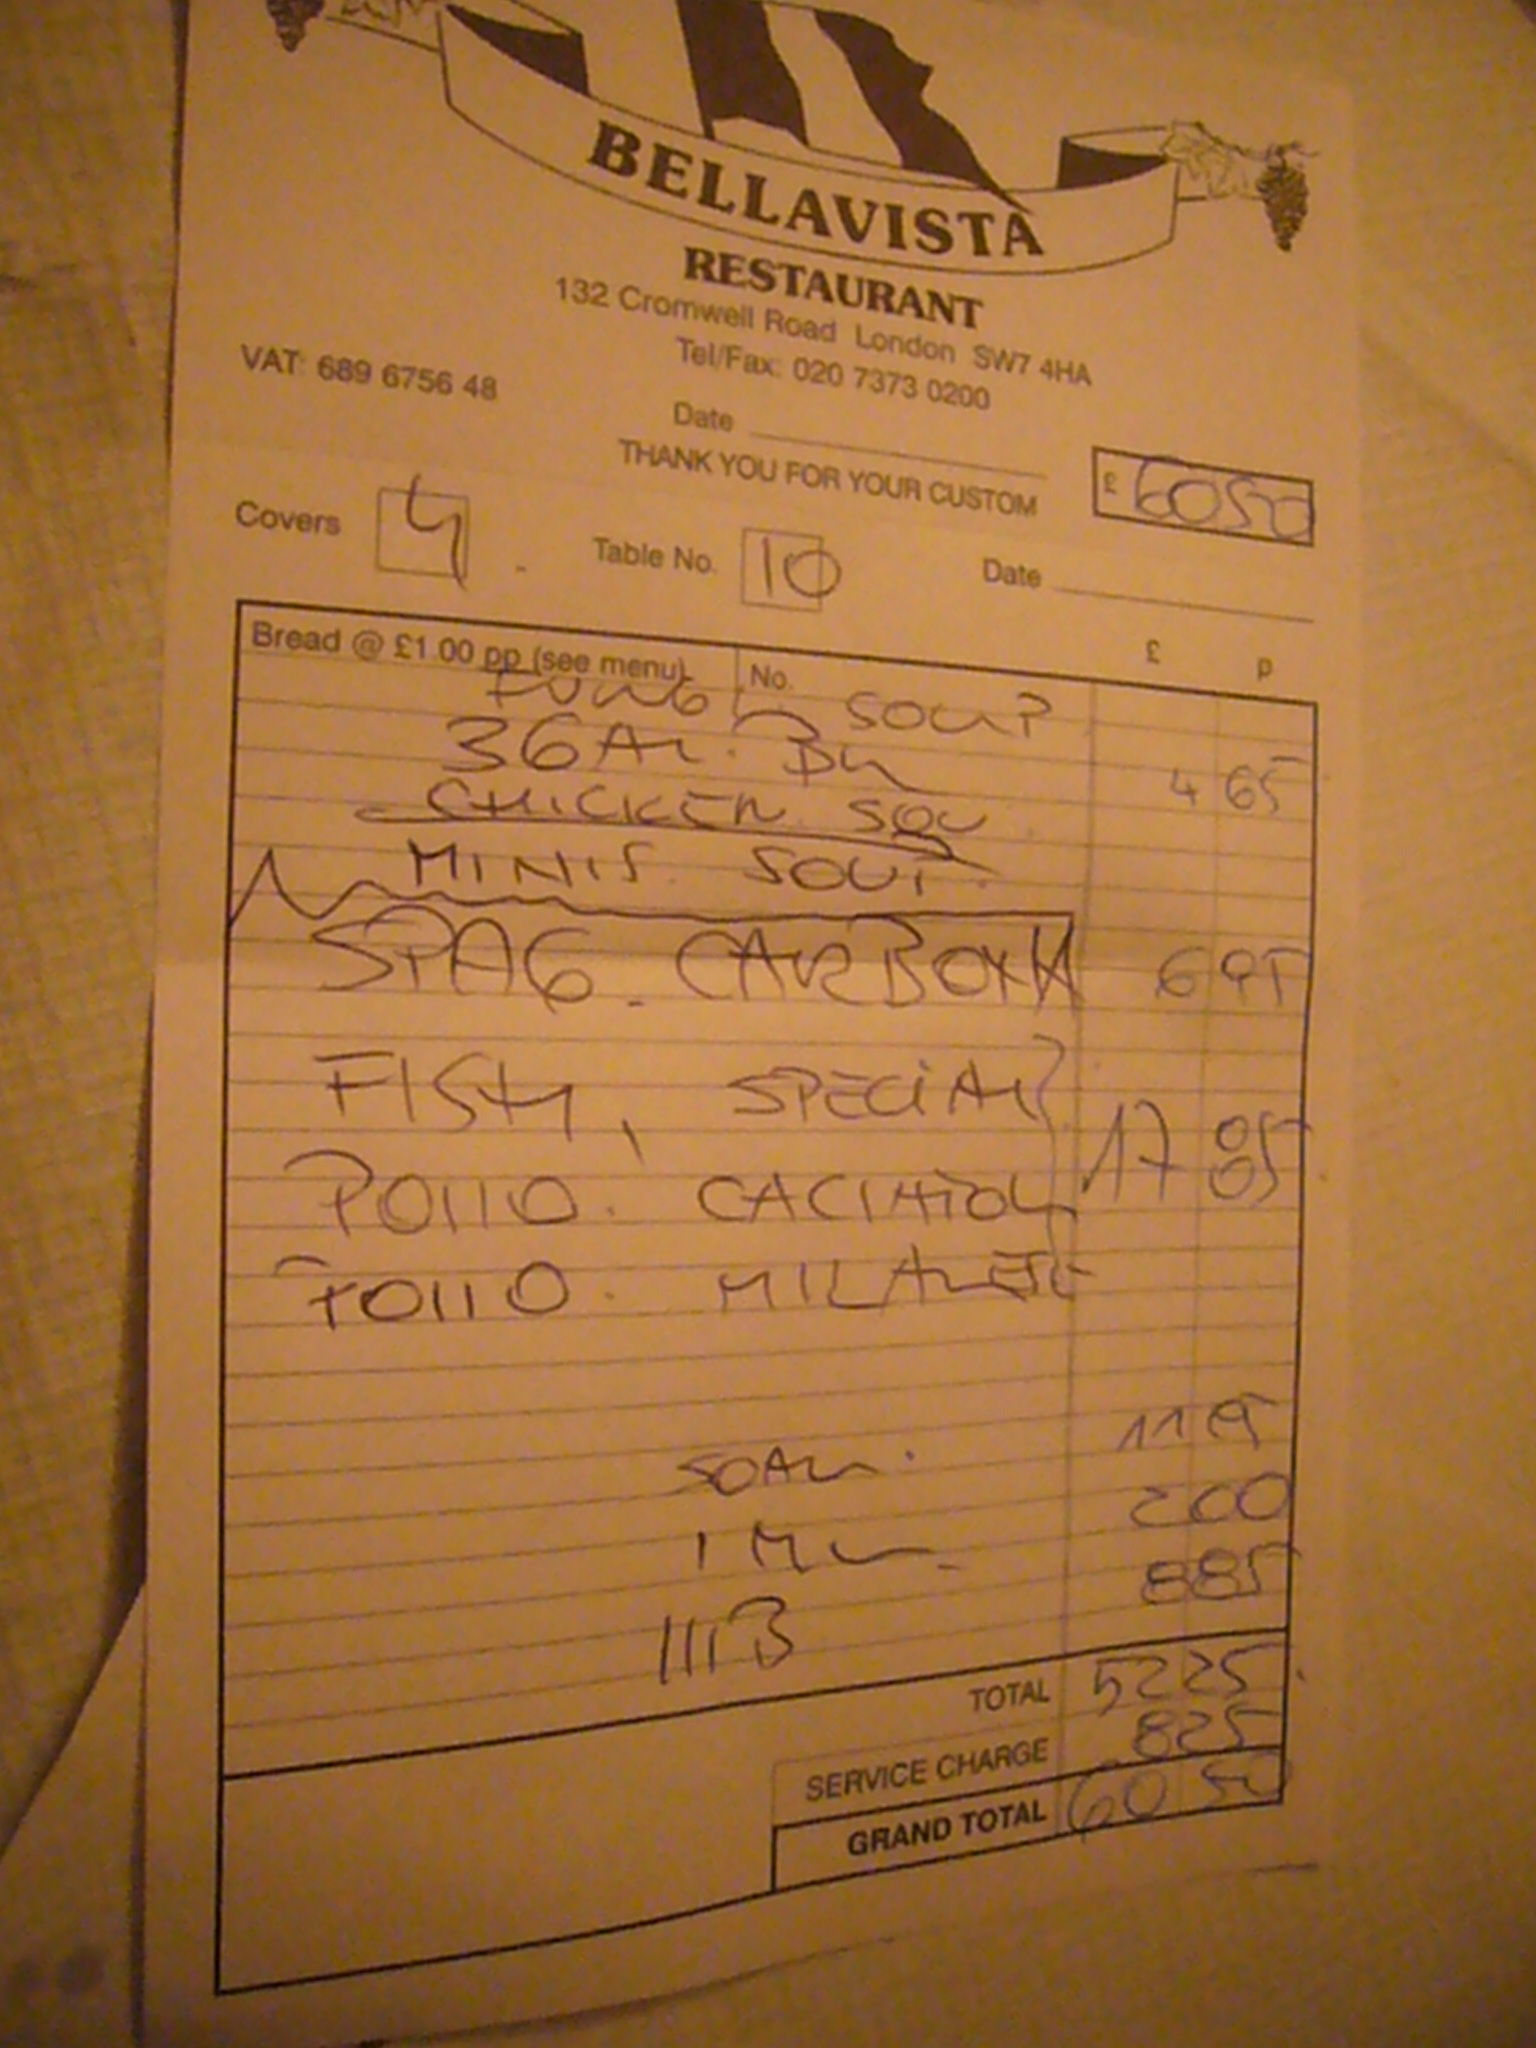 BELLAVISTA
RESTAURANT
132 Cromwell Road London SW7 4HA
Tel/Fax: 020 7373 0200
VAT: 689 6756 48
Date
THANK YOU FOR YOUR CUSTOM
£ 6050
Covers 4 Table No. 10 Date
Bread @ £1.00 pp (see menu) No. £ p
SOUP
4 65
CHICKEN SOU
MINIS. SOUP
SPAG. CARBONA 6 95
FISH, SPECIAL
17 85
POLLO. CACIATOL
POLLO. MILANESE
11 95
200
885
111B
TOTAL 5225
SERVICE CHARGE 825
GRAND TOTAL 60 50